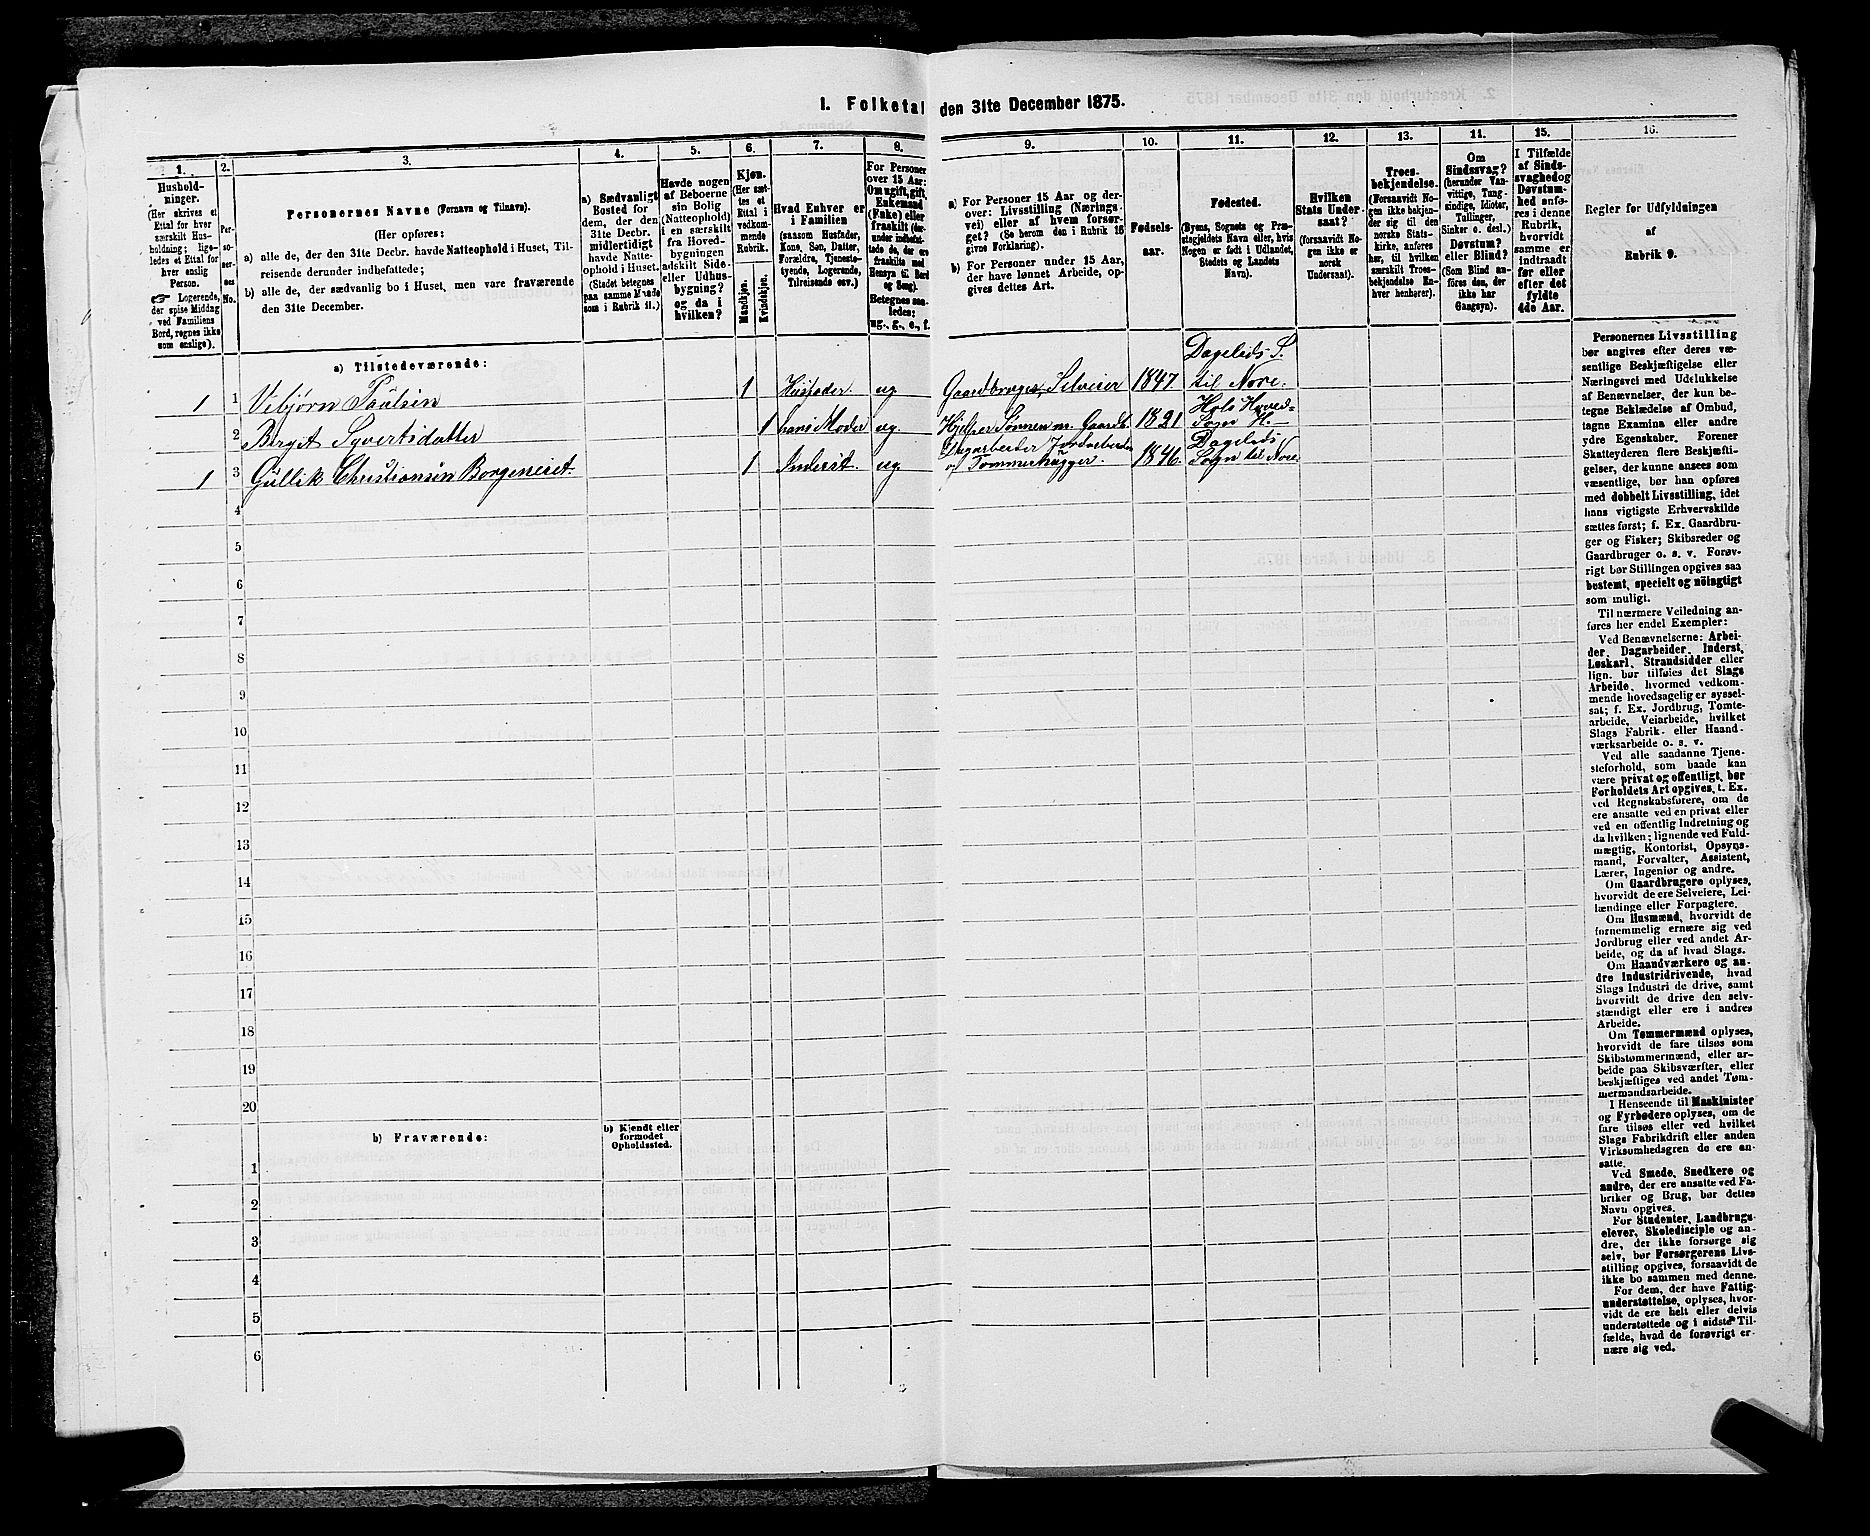 1. Folketal den 31te December 1875.
1.
Hushold-
ninger.
(Her skrives et
Ettal for hver
særskilt Hus-
holdning; lige-
ledes et Ettal for
hver enslig
Person.
☞ Logerende,
der spise Middag
ved Familiens
Bord, regnes ikke
som enslige).
2.
Per-
so-
ner-
nes
No.
3.
Personernes Navne (Fornavn og Tilnavn).
(Her opføres:
a) alle de, der den 31te Decbr. havde Natteophold i Huset, Til-
reisende derunder indbefattede;
b) alle de, der sædvanlig bo i Huset, men vare fraværende
den 31te December.
4.
a) Sædvanligt
Bosted for
dem, der den
31te Decbr.
midlertidigt
havde Natte-
ophold i Huset.
(Stedet betegnes
paa samme Maade
som i Rubrik 11.)
5.
Havde nogen
af Beboerne
sin Bolig
(Natteophold)
i en særskilt
fra Hoved-
bygningen
adskilt Side-
eller Udhus-
bygning?
og da i
hvilken?
6.
Kjøn.
(Her sæt-
tes et
Ettal i
vedkom-
mende
Rubrik.
Mandkjøn.
Kvindekjøn.
7.
Hvad Enhver er
i Familien
(saasom Husfader,
Kone, Søn, Datter,
Forældre, Tjeneste-
tyende, Logerende,
Tilreisende osv.)
8.
For Personer
over 15 Aar:
Om ugift, gift,
Enkemand
(Enke) eller
fraskilt (der-
under indbefat-
tede de, der ere
fraskilte med
Hensyn til Bord
og Seng).
Betegnes saa-
ledes:
ug., g., e., f.
9.
a) For Personer 15 Aar og der-
over: Livsstilling (Nærings-
vei) eller af hvem forsør-
get? (Se herom den i Rubrik 16
givne Forklaring).
b) For Personer under 15 Aar,
der have lønnet Arbeide, op-
gives dettes Art.
10.
Fødsels-
aar.
11.
Fødested.
(Byens, Sognets og Præ-
stegjeldets Navn eller, hvis
Nogen er født i Udlandet,
Stedets og Landets
Navn).
12.
Hvilken
Stats Under-
saat?
(forsaavidt No-
gen ikke er
norsk
Undersaat).
13.
Troes-
bekjendelse.
(Forsaavidt No-
gen ikke bekjen-
der sig til den
norske Stats-
kirke, anføres
her, til hvilken
særskilt Troes-
bekjendelse En-
hver henhører).
14.
Om
Sindssvag?
(herunder Van-
vittige, Tung-
sindige, Idioter,
Tullinger,
Sinker o. desl.)
Døvstum?
eller Blind?
(Som Blind an-
føres den, der
ikke har
Gangsyn).
15.
I Tilfælde
af Sinds-
svaghed og
Døvstum-
hed anfø-
res i denne
Rubrik,
hvorvidt
samme er
indtraadt
før eller
efter det
fyldte
4de Aar.
16.
Regler før Udfyldningen
af
Rubrik 9.
a) Tilstedeværende:
1 1 Vebjørn Paulsen 1 Husfader ug Gaardbruger, Selveier 1847 Dagelids S. til Nore.
2 Berget Syvertsdatter 1 hans Moder ug. Hjelper Sønnen m. Gaardb. 1821 Hols Hoved-Sogn H.
1 3 Gullik Christiansen Borgeneiet 1 Inderst. ug Dagarbeider Jordarbeider og Tømmerhugger. 1846. Dagelids Sogn til Nore
4
5
6
7
8
9
10
11
12
13
14
15
16
17
18
19
20
b) Fraværende:
b) Kjendt eller
formodet
Opholdssted.
1
2
3
4
5
6
Personernes Livsstilling
bør angives efter deres væ-
sentlige Beskjæftigelse eller
Næringsvei med Udelukkelse
af Benævnelser, der kun be-
tegne Beklædelse af Ombud,
tagne Examina eller andre
ydre Egenskaber. Forener
Skatteyderen flere Beskjæfti-
gelser, der kunne ansees som
væsentlige, bør han opføres
med dobbelt Livsstilling, idet
hans vigtigste Erhvervskilde
sættes først; f. Ex. Gaardbru-
ger og Fisker; Skibsreder og
Gaardbruger o. s. v. Forøv-
rigt bør Stillingen opgives saa
bestemt, specielt og nöiagtigt
som muligt.
Til nærmere Veiledning an-
føres her endel Exempler:
Ved Benævnelserne: Arbei-
der, Dagarbeider, Inderst,
Løskarl, Strandsidder eller
lign. bør tilføies det Slags
Arbeide, hvormed vedkom-
mende hovedsagelig er syssel-
sat; f. Ex. Jordbrug, Tomte-
arbeide, Veiarbeide, hvilket
Slags Fabrik- eller Haand-
værksarbeide o. s. v.
Ved alle saadanne Tjene-
steforhold, som baade kan
være privat og offentligt, bør
Forholdets Art opgives, f. Ex.
ved Regnskabsførere, om de
ere ansatte ved en privat eller
ved en offentlig Indretning og
da hvilken; lignende ved Fuld-
mægtig, Kontorist, Opsyns-
mand, Forvalter, Assistent,
Lærer, Ingeniør og andre.
Om Gaardbrugere oplyses,
hvorvidt de ere Selveiere, Lei-
lændinge eller Forpagtere.
Om Husmænd, hvorvidt de
fornemmelig ernære sig ved
Jordbrug eller ved andet Ar-
beide, og da af hvad Slags.
Om Haandværkere og an-
dre Industridrivende, hvad
Slags Industri de drive, samt
hvorvidt de drive den selv-
stændigt eller ere i andres
Arbeide.
Om Tømmermænd oplyses,
hvorvidt de fare tilsøs som
Skibstømmermænd, eller ar-
beide paa Skibsværfter, eller
beskjæftiges ved andet Tøm-
mermandsarbeide.
I Henseende til Maskinister
og Fyrbødere oplyses, om de
fare tilsøs eller ved hvilket
Slags Fabrikdrift eller anden
Virksomhedsgren de ere an-
satte.
Ved Smede, Snedkere og
andre, der ere ansatte ved Fa-
briker og Brug, bør dettes
Navn opgives.
For Studenter, Landbrugs-
elever, Skoledisciple og an-
dre, der ikke forsørge sig
selv, bør Forsørgerens Livs-
stilling opgives, forsaavidt de
ikke bo sammen med denne.
For dem, der have Fattig-
understøttelse, oplyses, hvor-
vidt de ere helt eller delvis
understøttede og i sidste Til-
fælde, hvad de forøvrigt er-
nære sig ved.